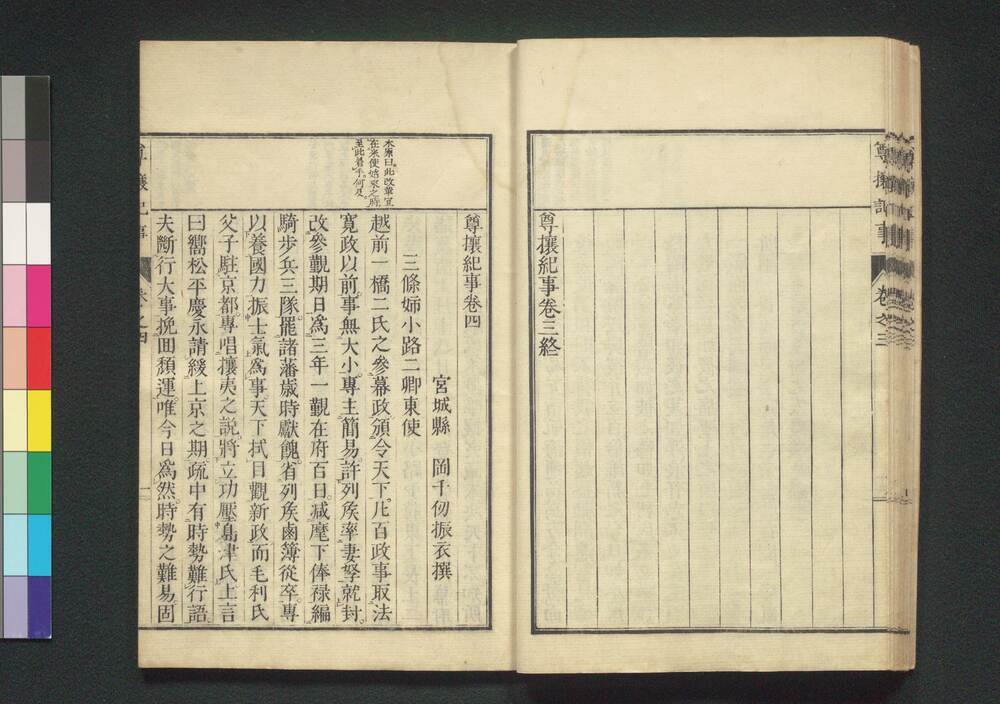 尊攘紀事
卷之三
尊攘紀事卷三終
木原曰此改革宜
在米使始來之時
至此着手何及
尊攘紀事卷四
宮城縣 岡千仞振衣撰
三條姉小路二卿東使
越前一橋二氏之參幕政頒令天下凡百政事取法
寬政以前事無大小專主簡易許列矦率妻孥就封
改參覲期日爲三年一覲在府百日減麾下俸祿編
騎步兵三隊罷諸藩歲時獻餽省列矦鹵簿從卒專
以養國力振士氣爲事天下拭目觀新政而毛利氏
父子駐京都專唱攘夷之說將立功壓島津氏上言
曰嚮松平慶永請緩上京之期疏中有時勢難行語
夫斷行大事挽回頹運唯今日爲然時勢之難易固
尊攘紀事
卷之四
一